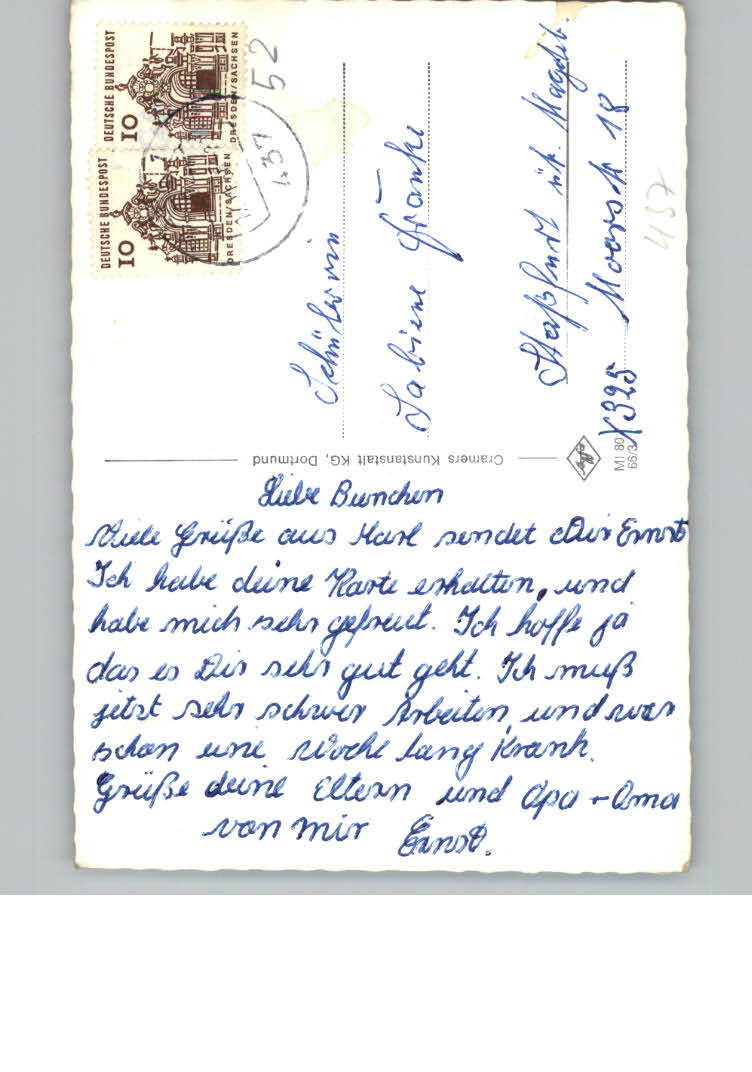 DEUTSCHE BUNDESPOST
10
DRESDEN/SACHSEN
DEUTSCHE BUNDESPOST
10
DRESDEN/SACHSEN
437
52
Schülerin
Sabiene Franke
Staßfurt üb. Magdeb.
X325
18
457
Cramers Kunstanstalt KG, Dortmund
MI 80
66/3
Liebe Bienchen
Viele Grüße aus Marl sendet Dir Ernst
Ich habe deine Karte erhalten, und
habe mich sehr gefreut. Ich hoffe ja
das es Dir sehr gut geht. Ich muß
jetzt sehr schwer Arbeiten, und war
schon eine Woche lang Krank.
Grüße deine Eltern und Opa + Oma
von mir Ernst.